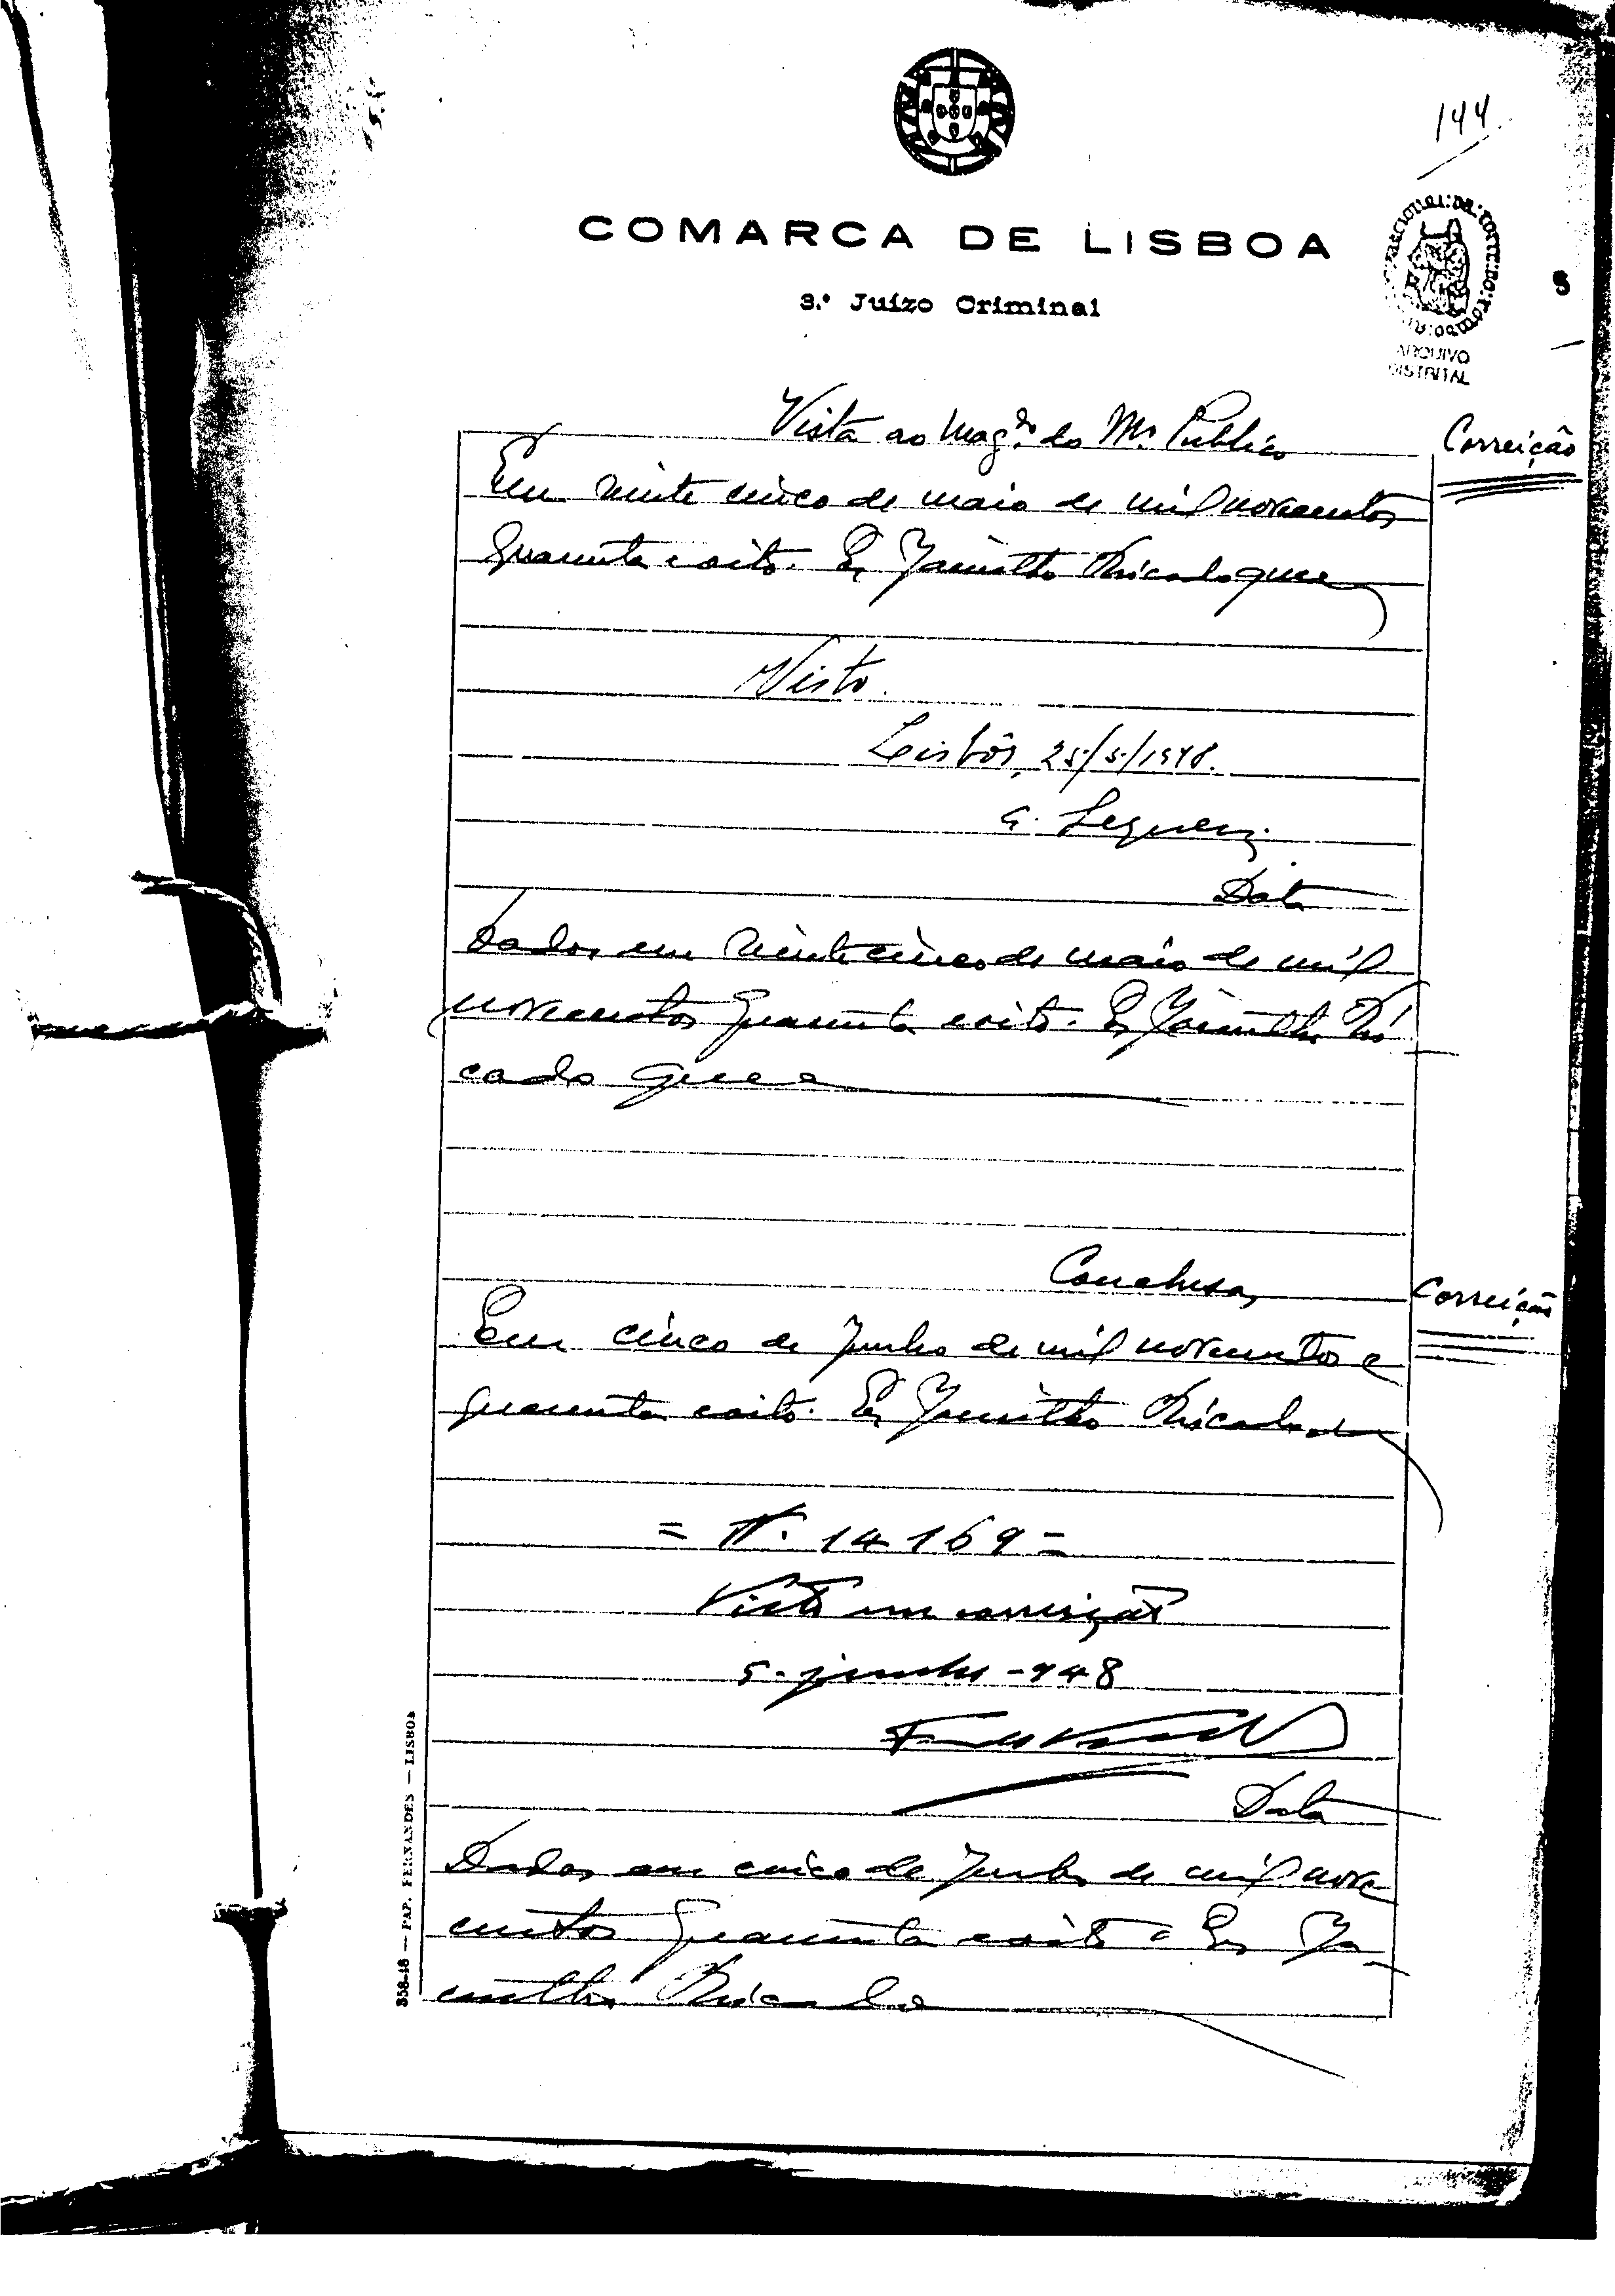 144
COMARCA DE LISBOA
3.º Juízo Criminal
ARQUIVO
DISTRITAL
Vista ao Mag.do do M.º Publico
Correição
Em vinte cinco de maio de mil novecentos
quarenta e oito. Eu, Jacintho Ricardo
Visto.
Lisbôa, 25/5/1948.
Data
Dados em vinte cinco de maio de mil
novecentos quarenta e oito. Eu, Jacintho Ri
cardo
Conclusos,
Correição
Em cinco de Junho de mil novecentos e
quarenta e oito. Eu, Jacintho Ricardo
= N. 14169 =
Visto em correição
5-junho-948
Data
Dados em cinco de Junho de mil nove
centos quarenta e oito Eu Ja
cintho Ricardo
358-48 — PAP. FERNANDES — LISBOA